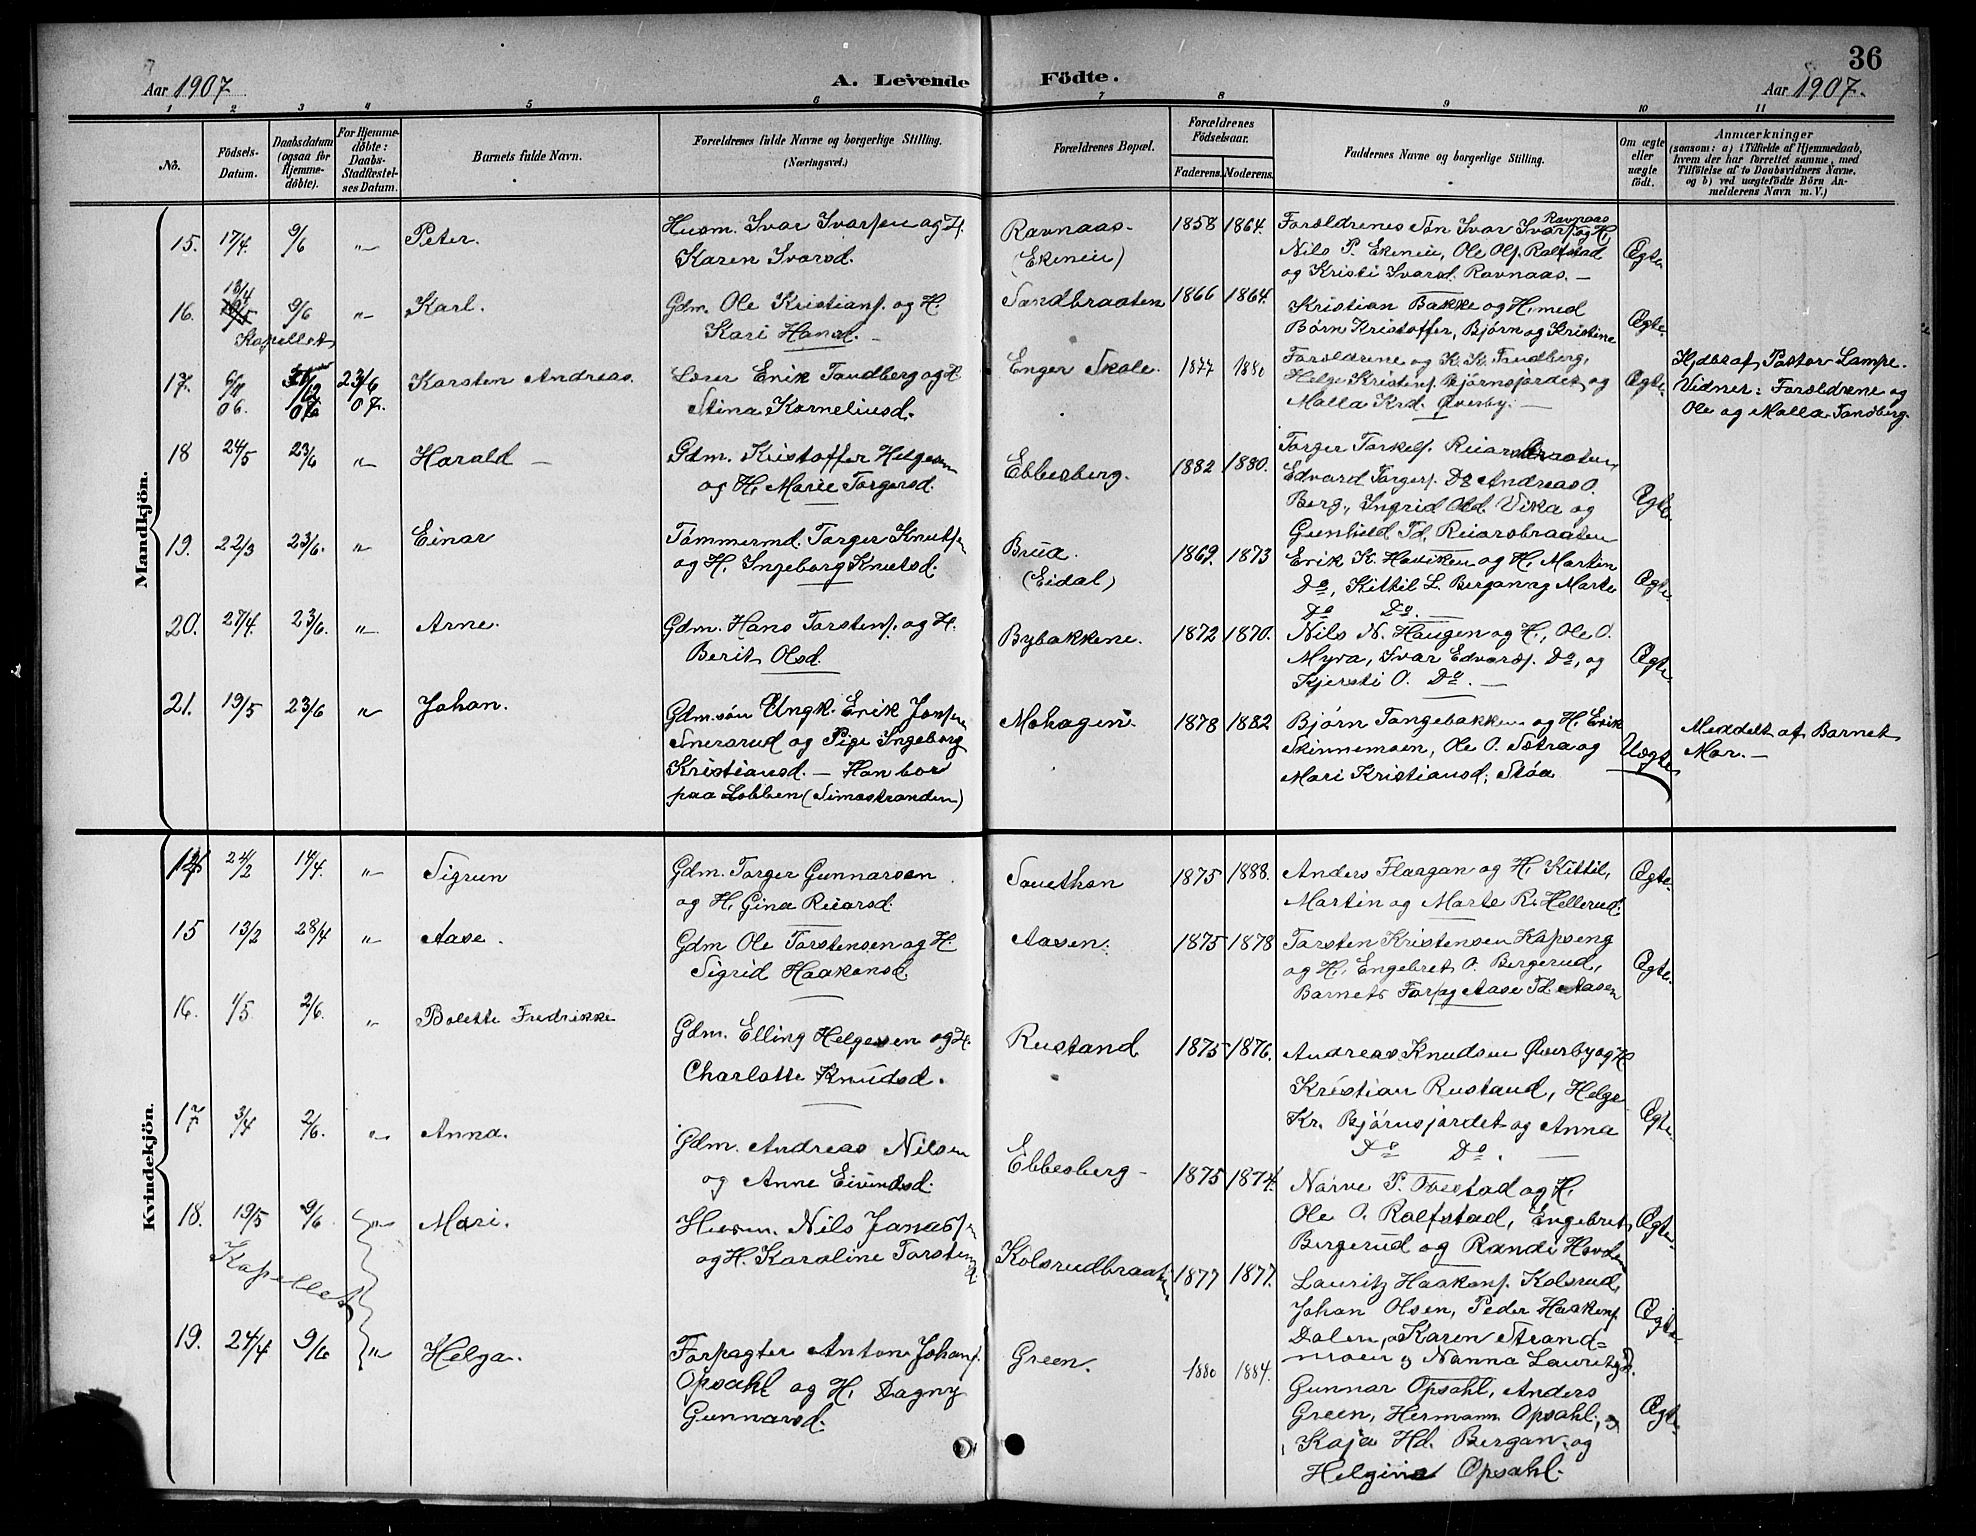 36
Aar 1907
A. Levende Födte.
Aar 1907.
1 2 3 4 5 6 7 8 9 10 11
No.
Födsels-Datum.
Daabsdatum (ogsaa for Hjemmedöbte).
For Hjemmedöbte: Daabs-Stadfæstelses Datum.
Barnets fulde Navn.
Forældrenes fulde Navne og borgerlige Stilling. (Næringsvei.)
Forældrenes Bopæl.
Forældrenes Födselsaar.
Faderens. Moderens.
Faddernes Navne og borgerlige Stilling.
Om ægte eller uægte födt.
Anmærkninger
(saasom: a) i Tilfælde af Hjemmedaab, hvem der har forrettet samme, med Tilföielse af to Daabsvidners Navne, og b) ved uægtefödte Börn Anmelderens Navn m. V.)
Mandkjön.
15. 17/4 9/6 " Peter.
Husm. Ivar Ivarsen og H.
Karen Ivarsd.
Ravnaas.
(Ekeneie)
1858 1864.
Forældrenes Søn Ivar Ivars. Ravnaas og H,
Nils P. Ekeneie, Ole Ols. Rolfstad
og Kristi Ivarsd. Ravnaas. —
Ægte.
16. 18/4 9/6 " Karl.
Kapellet
Gdm. Ole Kristians. og H.
Kari Hansd. —
Sandbraaten
1866 1864.
Kristian Bakke og H, med
Børn Kristoffer, Bjørn og Kristine
Ægte.
17. 06. 07. 23/6 07. Karsten Andreas.
Lærer Erik Sandberg og H
Stina Korneliusd.
Enger Skole.
1877 1880
Forældrene og K. K. Sandberg,
Helge Kristens. Bjørnsjordet og
Malla Krd. Øverby. —
Ægte.
Hjdbt af Pastor Lampe.
Vidner: Forældrene og
Ole og Malla Sandberg.
18 24/5 23/6 " Harald —
Gdm. Kristoffer Helgesen
og H. Marie Torgersd.
Ebbesberg.
1882 1880.
Torger Torkels. Reiarsbraaten
Edvard Torgers. Do Andreas O.
Berg, Ingrid Olsd. Vika og
Gunhild Td. Reiarsbraaten
Ægte.
19. 22/3 23/6. " Einar
Tømmermd. Torger Knuts.
og H. Ingeborg Knutsd.
Brua.
(Eidal)
1869. 1873
Erik K. Haviken og H. Martin
Do, Kittil L. Bergan og Marte
Do Do. —
Ægte.
20. 27/4. 23/6. " Arne.
Gdm. Hans Torstens. og H.
Berit Olsd.
Bybakkene.
1872 1870.
Nils N. Haugen og H, Ole O.
Myra, Ivar Edvards. Do, og
Kjersti O. Do. —
Ægte
21. 19/5 23/6 " Johan.
Gdm.søn Ungk. Erik Jonsen
Snerarud og Pige Ingeborg
Kristiansd. — Han bor
paa Lobben (Simostranden)
Mohagen.
1878 1882
Bjørn Tangebakken og H. Erik
Skinnemoen, Ole O. Sætra og
Mari Kristiansd. Støa
Uægte
Meddelt af Barnets
Mor. —
Kvindekjön.
14 24/2 14/4. " Sigrun
Gdm. Torger Gunnarsen
og H, Gina Reiarsd.
1875 1888.
Anders Flargan og H. Kittil,
Martin og Marte R. Hellerud.
Ægte.
15 13/2 28/4 " Aase.
Gdm Ole Torstensen og H
Sigrid Haakensd.
Aasen.
1875 1878
Torsten Kristensen Kapseng
og H, Engebret O. Bergerud,
Barnets Far og Aase Td. Aasen
Ægte.
16. 1/5 2/6. " Bolette Fredrikke
Gdm. Elling Helgesen og H.
Charlotte Knudsd.
Rustand
1875 1876.
Andreas Knudsen Øverby og H
Kristian Rustand, Helge
Kr. Bjørnsjordet og Anna
Do Do. —
Ægte.
17. 3/4 2/6. " Anna.
Gdm. Andreas Nilsen
og Anne Eivindsd.
Ebbesberg —
1875 1874.
Narve P. og H.
Ole O. Rolfstad, Engebret
Bergerud og Randi Hovde
Ægte.
18. 19/5 9/6 " Mari.
Kapellet
Husm. Nils Jonass.
og H. Karoline Torstensd.
Kolsrudbraaten
1877 1877.
Lauritz Haakens. Kolsrud,
Johan Olsen, Peder Haakens.
Dalen, Karen Strand=
moen og Nanna Lauritzd.
Ægte
19. 24/4 9/6 " Helga.
Forpagter Anton Johans.
Opsahl og H. Dagny
Gunnarsd.
Green.
1880 1884.
Gunnar Opsahl, Anders
Green, Hermann Opsahl, og
Kaja Hd. Bergan og
Helgine Opsahl.
Ægte.